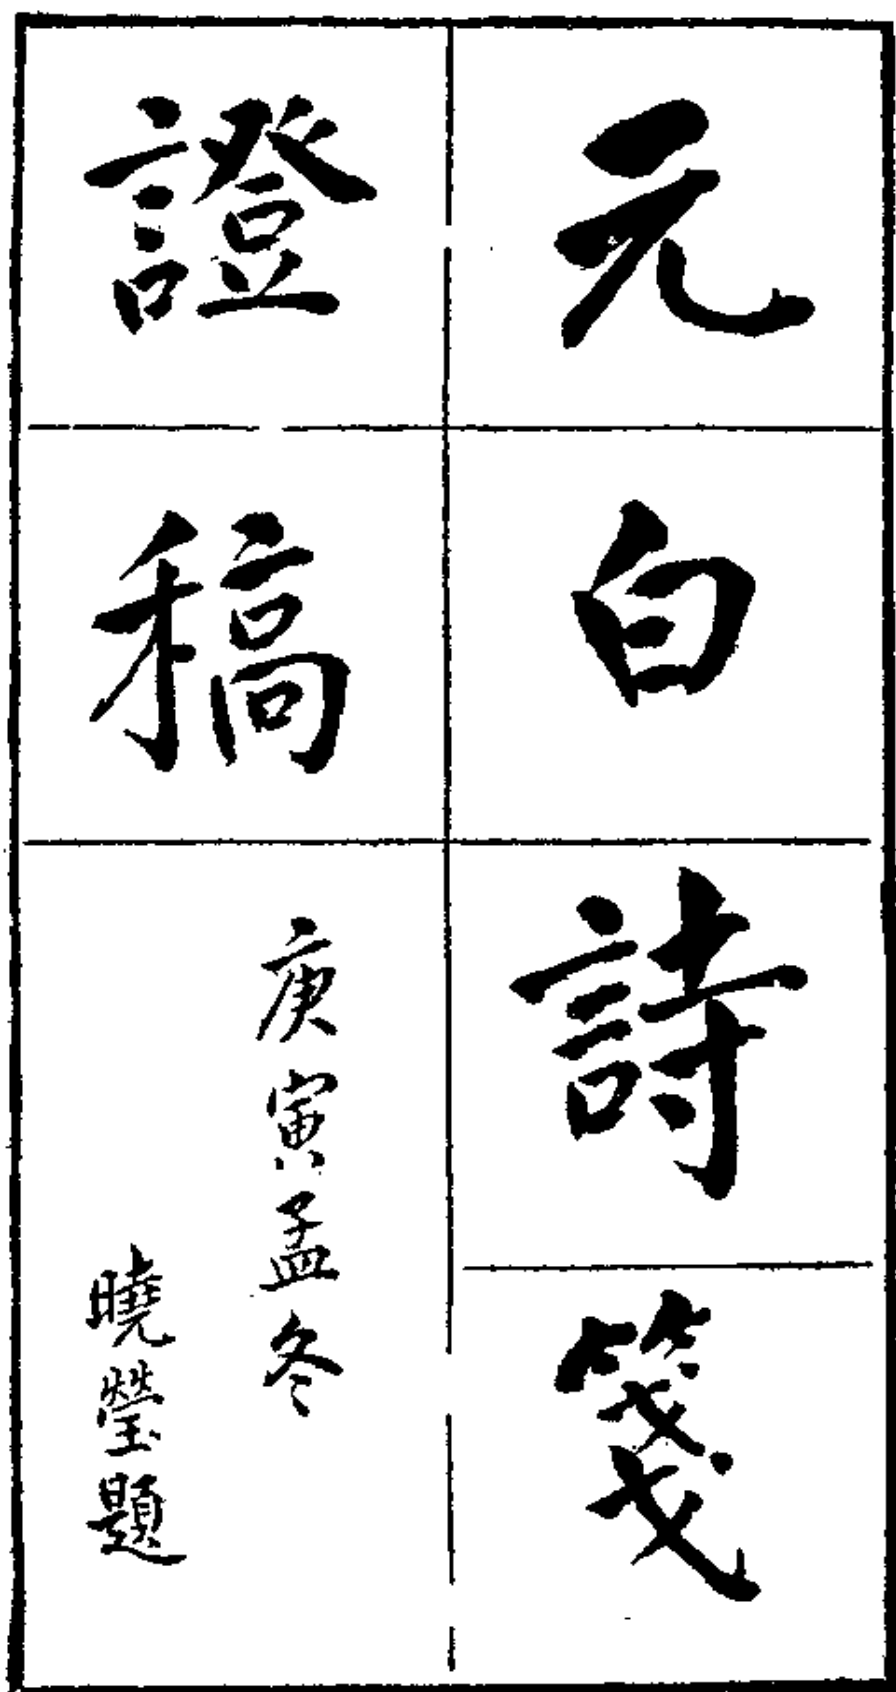 元白詩箋
證稿
庚寅孟冬
曉瑩題